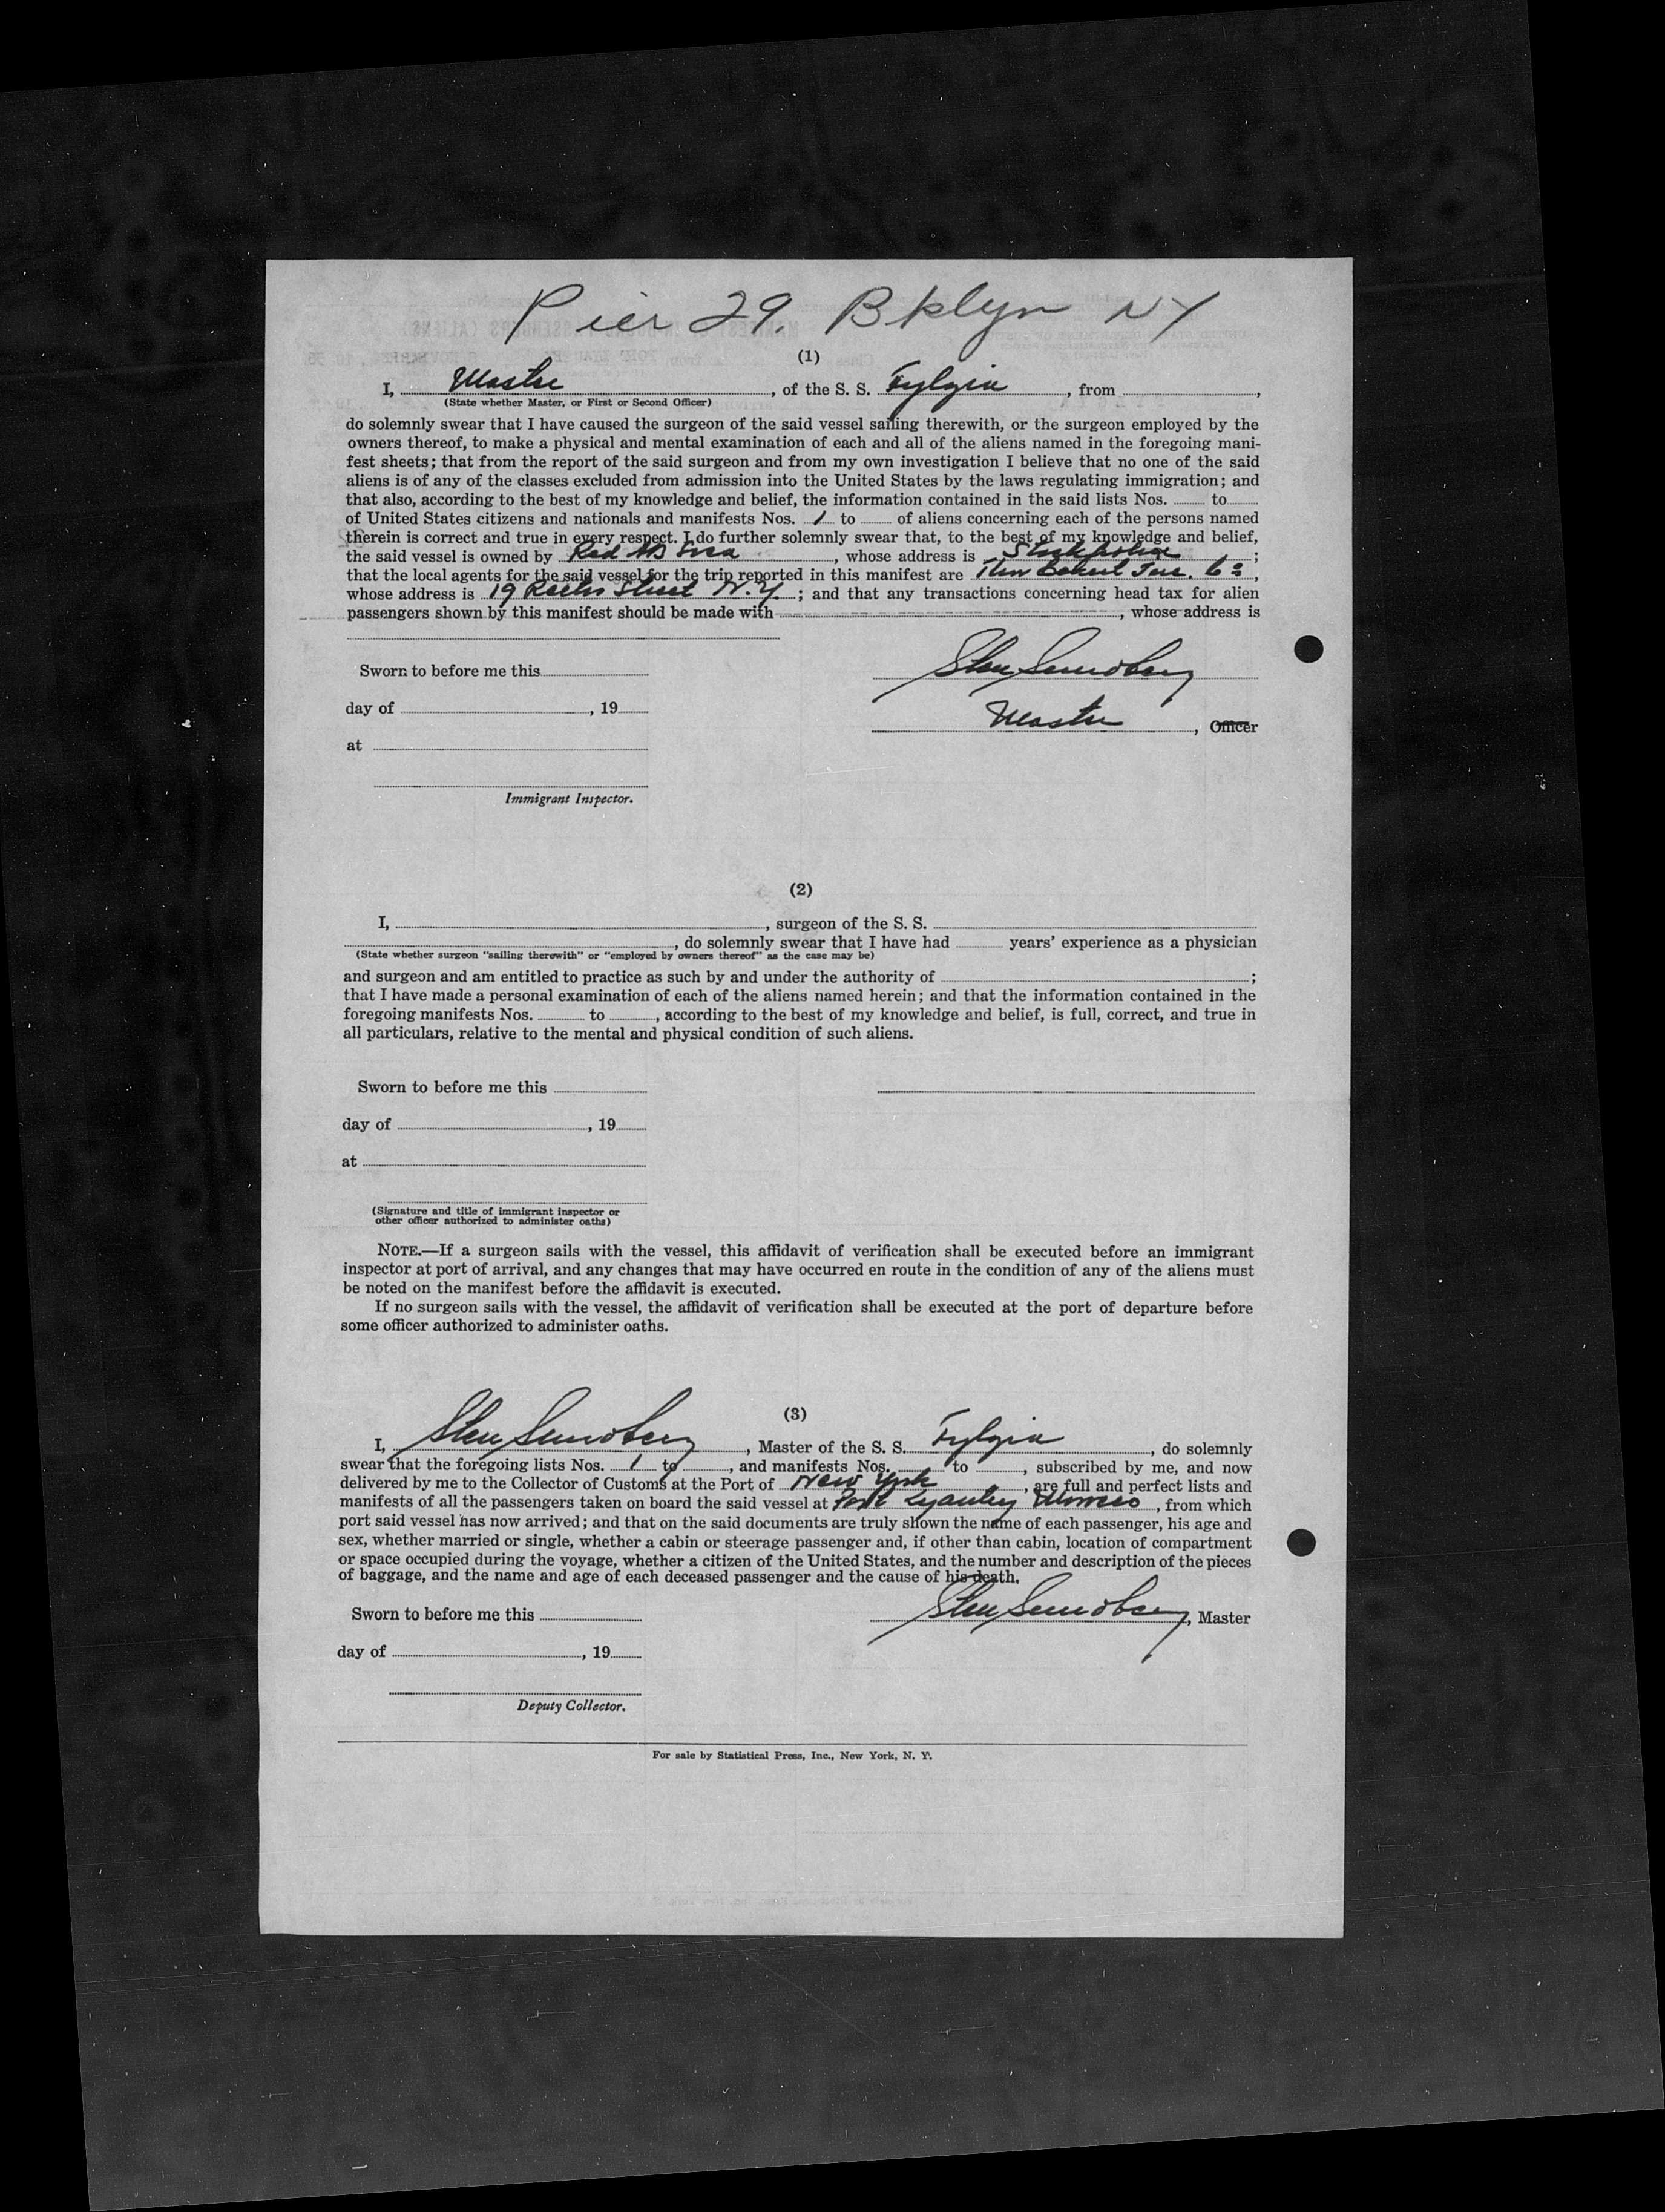 Pier 29, Bklyn NY
(1)
I, Master, of the S. S. Fylgia, from ,
(State whether Master, or First or Second Officer)
do solemnly swear that I have caused the surgeon of the said vessel sailing therewith, or the surgeon employed by the
owners thereof, to make a physical and mental examination of each and all of the aliens named in the foregoing mani-
fest sheets; that from the report of the said surgeon and from my own investigation I believe that no one of the said
aliens is of any of the classes excluded from admission into the United States by the laws regulating immigration; and
that also, according to the best of my knowledge and belief, the information contained in the said lists Nos. to
of United States citizens and nationals and manifests Nos. 1 to of aliens concerning each of the persons named
therein is correct and true in every respect. I do further solemnly swear that, to the best of my knowledge and belief,
the said vessel is owned by Red AB Svea, whose address is Stockholm;
that the local agents for the said vessel for the trip reported in this manifest are Thor Eckert Co,
whose address is 19 Rector Street N.Y.; and that any transactions concerning head tax for alien
passengers shown by this manifest should be made with , whose address is
Sworn to before me this
Sten Sundberg
day of , 19
Master, Officer
at
Immigrant Inspector.
(2)
I, , surgeon of the S. S.
, do solemnly swear that I have had years' experience as a physician
(State whether surgeon "sailing therewith" or "employed by owners thereof" as the case may be)
and surgeon and am entitled to practice as such by and under the authority of ;
that I have made a personal examination of each of the aliens named herein; and that the information contained in the
foregoing manifests Nos. to , according to the best of my knowledge and belief, is full, correct, and true in
all particulars, relative to the mental and physical condition of such aliens.
Sworn to before me this
day of , 19
at
(Signature and title of immigrant inspector or
other officer authorized to administer oaths)
NOTE.—If a surgeon sails with the vessel, this affidavit of verification shall be executed before an immigrant
inspector at port of arrival, and any changes that may have occurred en route in the condition of any of the aliens must
be noted on the manifest before the affidavit is executed.
If no surgeon sails with the vessel, the affidavit of verification shall be executed at the port of departure before
some officer authorized to administer oaths.
(3)
I, Sten Sundberg, Master of the S. S. Fylgia, do solemnly
swear that the foregoing lists Nos. 1 to , and manifests Nos. to , subscribed by me, and now
delivered by me to the Collector of Customs at the Port of New York, are full and perfect lists and
manifests of all the passengers taken on board the said vessel at Port Lyautey Morocco, from which
port said vessel has now arrived; and that on the said documents are truly shown the name of each passenger, his age and
sex, whether married or single, whether a cabin or steerage passenger and, if other than cabin, location of compartment
or space occupied during the voyage, whether a citizen of the United States, and the number and description of the pieces
of baggage, and the name and age of each deceased passenger and the cause of his death.
Sworn to before me this
Sten Sundberg, Master
day of , 19
Deputy Collector.
For sale by Statistical Press, Inc., New York, N. Y.